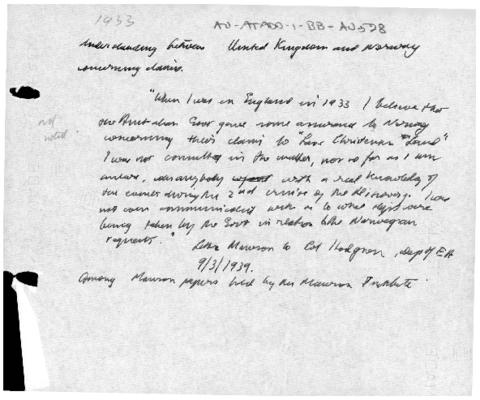 1933 AU-ATADD-1-BB-AU528
Understanding between United Kingdom and Norway
concerning claims.
"When I was in England in 1933 I believe that
not the Australian Govt gave some assurance to Norway
noted concerning their claim to "Lars Christensen Land"
I was not consulted in the matter, nor so far as I am
aware, was anybody with a real knowledge of
our during the 2nd cruise of the Discovery. I was
not even communicated with as to what steps were
being taken by the Govt in relation to the Norwegian
requests."
Letter Mawson to Col Hodgson, dept of EA
9/3/1939.
Among Mawson papers held by the Mawson Institute.